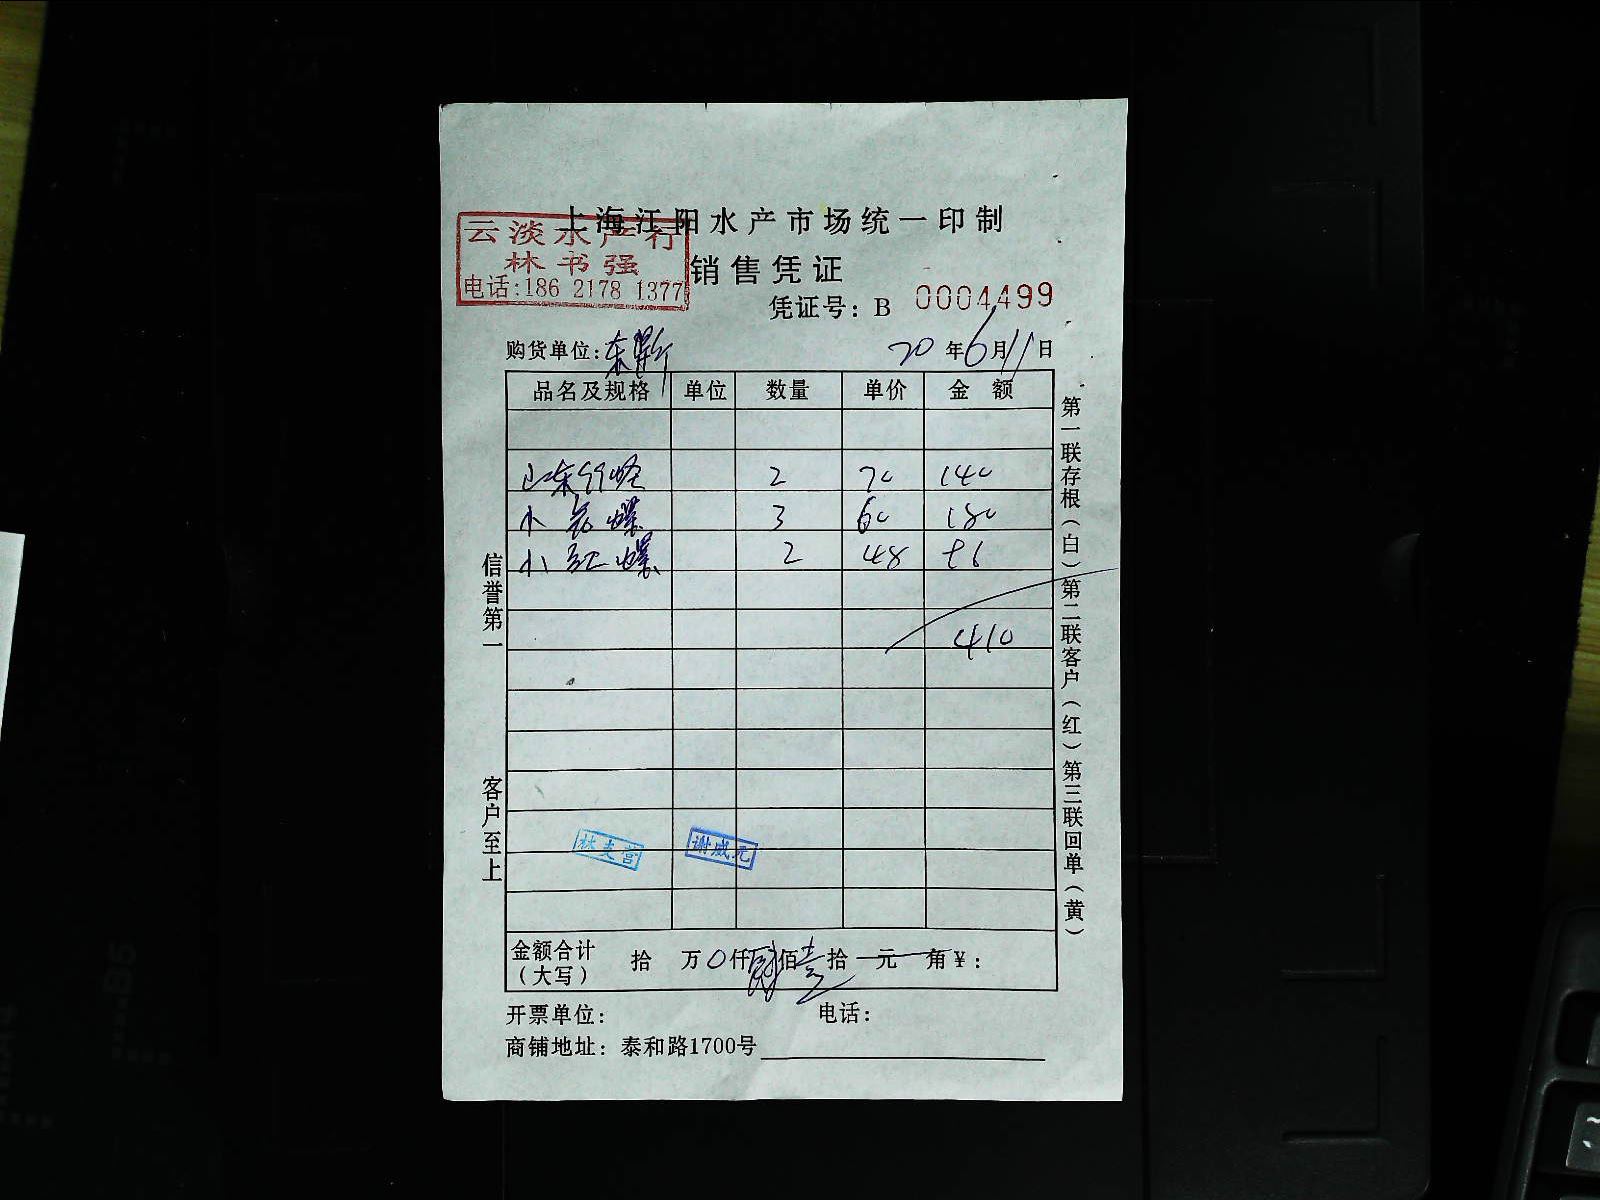 上海江阳水产市场统一印制
云淡水产行
林书强
电话:186 2178 1377
销售凭证
凭证号: B 0004499
购货单位:
20年6月11日
品名及规格 单位 数量 单价 金额
山东 2 70 140
小花螺 3 60 180
小红螺 2 48 96
410
信誉第一
客户至上
第一联存根(白)第二联客户(红)第三联回单(黄)
林支营 谢威元
金额合计(大写) 拾 万0仟肆佰壹拾 元 角¥:
开票单位: 电话:
商铺地址: 泰和路1700号